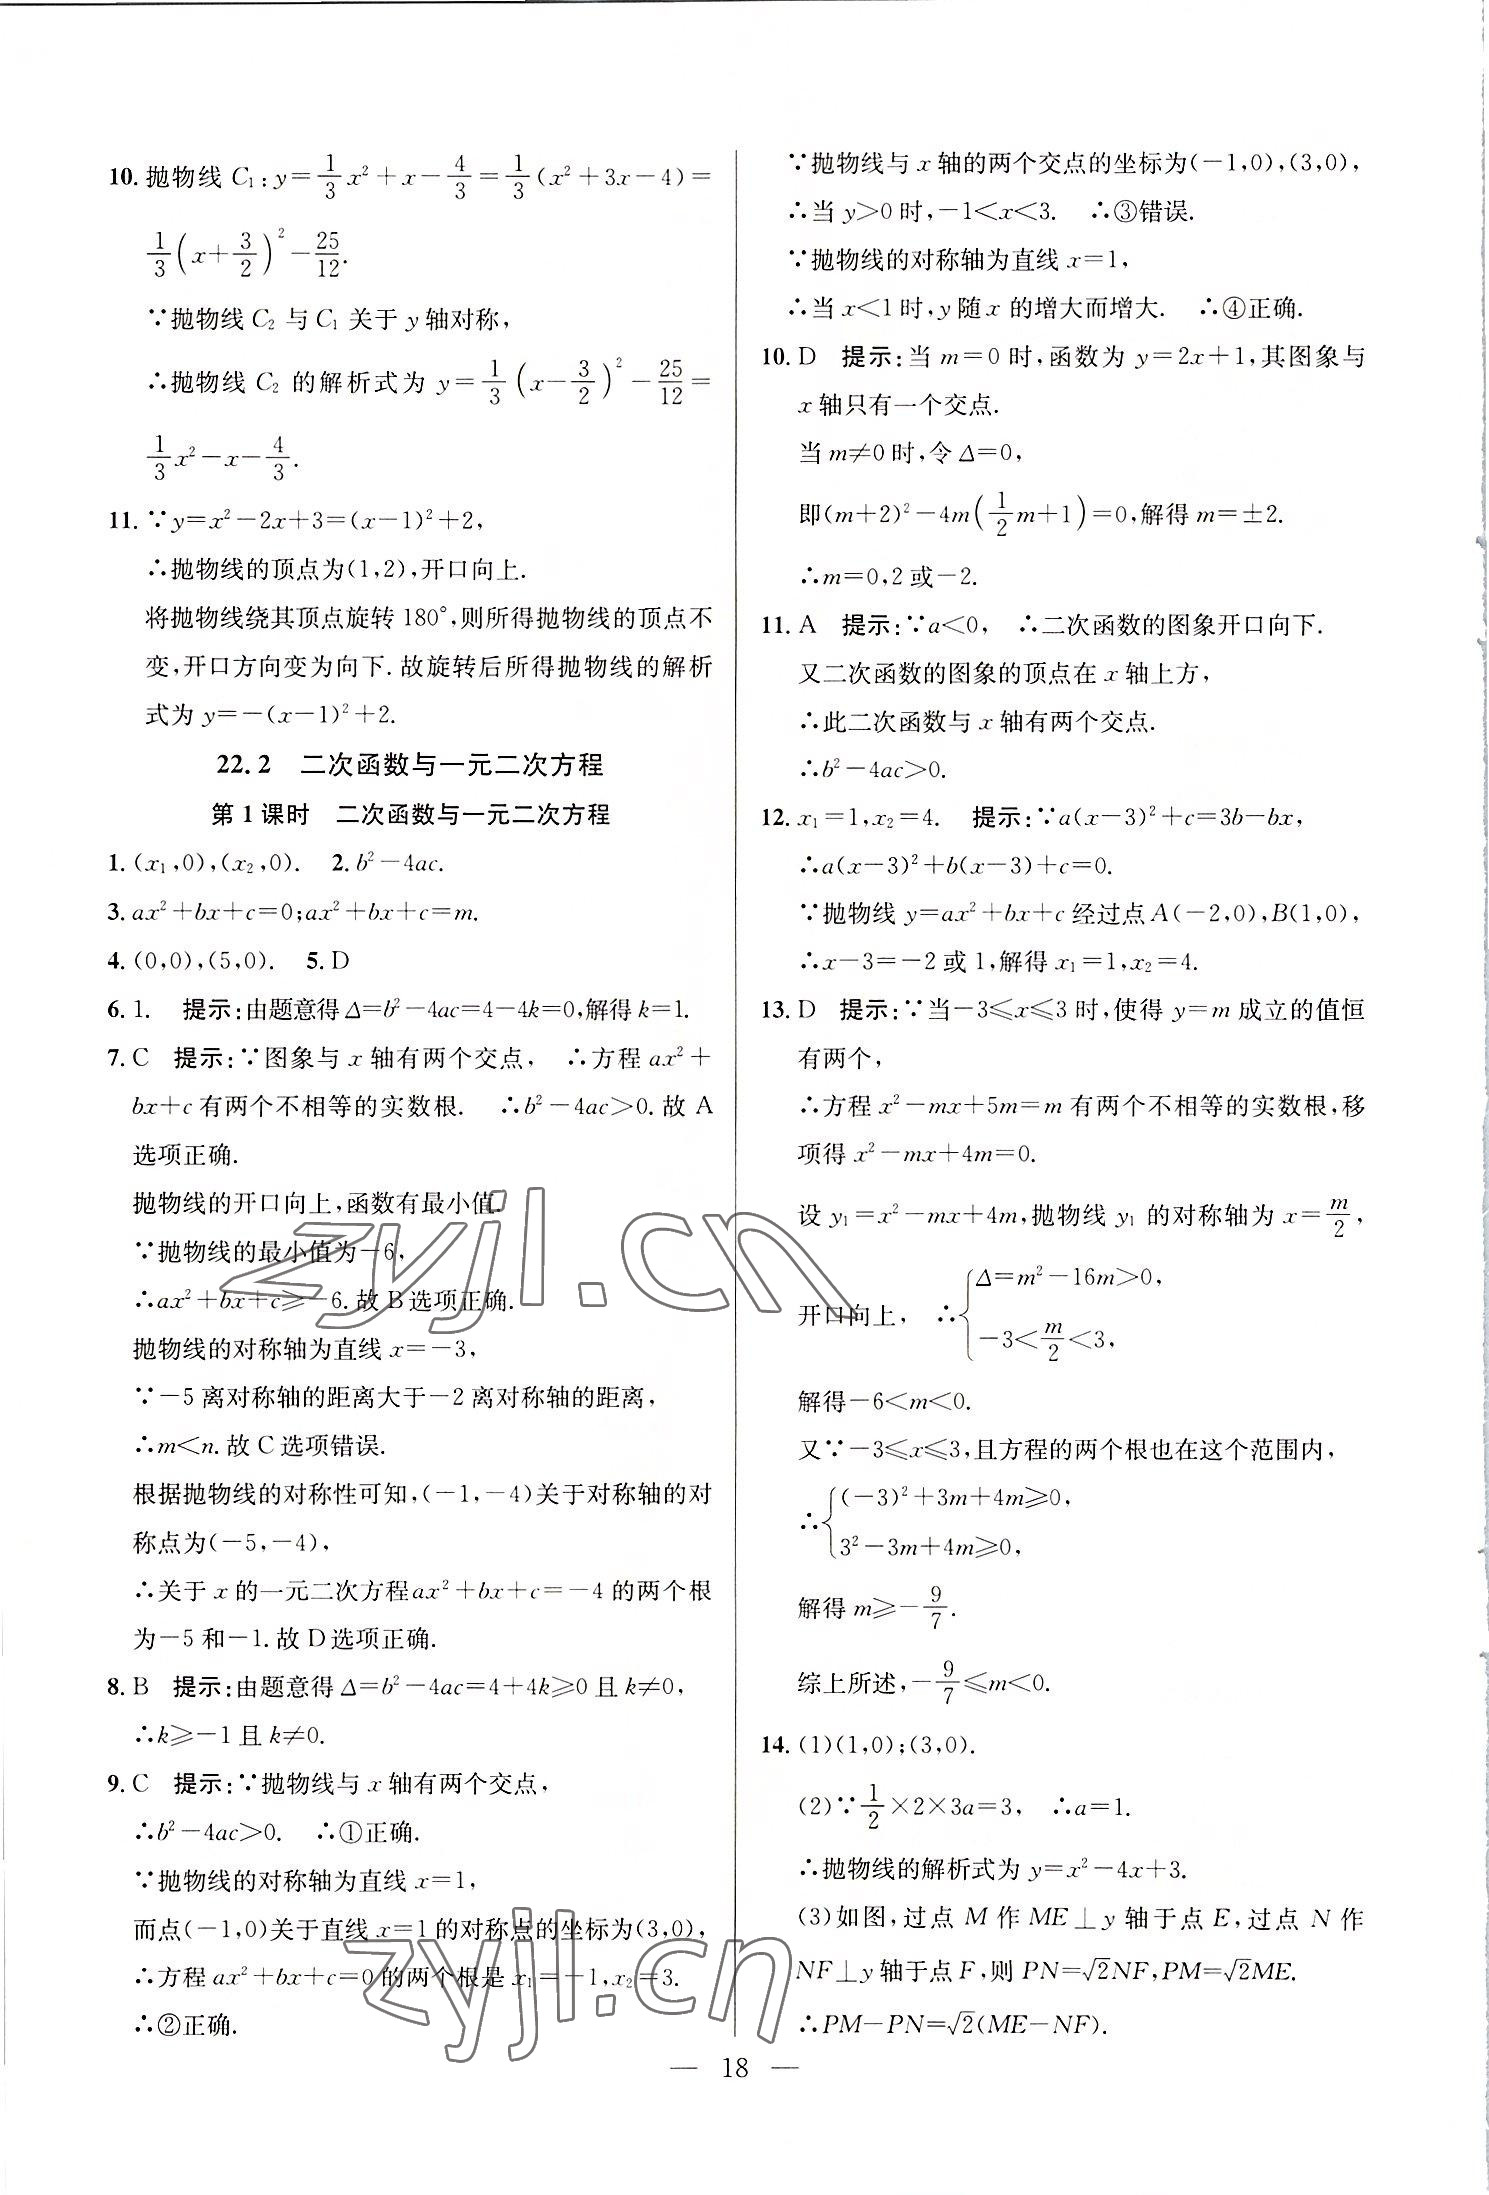 10. 抛物线 C₁：y=1/3x²+x-4/3=1/3(x²+3x-4)=
1/3(x+3/2)²-25/12.
∵抛物线 C₂ 与 C₁ 关于 y 轴对称，
∴抛物线 C₂ 的解析式为 y=1/3(x-3/2)²-25/12=
1/3x²-x-4/3.
11. ∵y=x²-2x+3=(x-1)²+2，
∴抛物线的顶点为(1,2)，开口向上.
将抛物线绕其顶点旋转 180°，则所得抛物线的顶点不
变，开口方向变为向下. 故旋转后所得抛物线的解析
式为 y=-(x-1)²+2.
22.2 二次函数与一元二次方程
第 1 课时 二次函数与一元二次方程
1. (x₁,0),(x₂,0). 2. b²-4ac.
3. ax²+bx+c=0;ax²+bx+c=m.
4. (0,0),(5,0). 5. D
6. 1. 提示：由题意得 Δ=b²-4ac=4-4k=0，解得 k=1.
7. C 提示：∵图象与 x 轴有两个交点， ∴方程 ax²+
bx+c 有两个不相等的实数根. ∴b²-4ac>0. 故 A
选项正确.
抛物线的开口向上，函数有最小值.
∵抛物线的最小值为-6，
∴ax²+bx+c≥-6. 故 B 选项正确.
抛物线的对称轴为直线 x=-3，
∵-5 离对称轴的距离大于-2 离对称轴的距离，
∴m<n. 故 C 选项错误.
根据抛物线的对称性可知，(-1,-4)关于对称轴的对
称点为(-5,-4)，
∴关于 x 的一元二次方程 ax²+bx+c=-4 的两个根
为-5 和-1. 故 D 选项正确.
8. B 提示：由题意得 Δ=b²-4ac=4+4k≥0 且 k≠0，
∴k≥-1 且 k≠0.
9. C 提示：∵抛物线与 x 轴有两个交点，
∴b²-4ac>0. ∴①正确.
∵抛物线的对称轴为直线 x=1，
而点(-1,0)关于直线 x=1 的对称点的坐标为(3,0)，
∴方程 ax²+bx+c=0 的两个根是 x₁=-1,x₂=3.
∴②正确.
∵抛物线与 x 轴的两个交点的坐标为(-1,0),(3,0)，
∴当 y>0 时，-1<x<3. ∴③错误.
∵抛物线的对称轴为直线 x=1，
∴当 x<1 时，y 随 x 的增大而增大. ∴④正确.
10. D 提示：当 m=0 时，函数为 y=2x+1，其图象与
x 轴只有一个交点.
当 m≠0 时，令 Δ=0，
即(m+2)²-4m(1/2m+1)=0，解得 m=±2.
∴m=0,2 或-2.
11. A 提示：∵a<0， ∴二次函数的图象开口向下.
又二次函数的图象的顶点在 x 轴上方，
∴此二次函数与 x 轴有两个交点.
∴b²-4ac>0.
12. x₁=1,x₂=4. 提示：∵a(x-3)²+c=3b-bx，
∴a(x-3)²+b(x-3)+c=0.
∵抛物线 y=ax²+bx+c 经过点 A(-2,0),B(1,0)，
∴x-3=-2 或 1，解得 x₁=1,x₂=4.
13. D 提示：∵当-3≤x≤3 时，使得 y=m 成立的值恒
有两个，
∴方程 x²-mx+5m=m 有两个不相等的实数根，移
项得 x²-mx+4m=0.
设 y₁=x²-mx+4m，抛物线 y₁ 的对称轴为 x=m/2，
开口向上， ∴{Δ=m²-16m>0，
-3<m/2<3，
解得-6<m<0.
又∵-3≤x≤3，且方程的两个根也在这个范围内，
∴{(-3)²+3m+4m≥0，
3²-3m+4m≥0，
解得 m≥-9/7.
综上所述，-9/7≤m<0.
14. (1)(1,0);(3,0).
(2)∵1/2×2×3a=3， ∴a=1.
∴抛物线的解析式为 y=x²-4x+3.
(3)如图，过点 M 作 ME⊥y 轴于点 E，过点 N 作
NF⊥y 轴于点 F，则 PN=√2NF,PM=√2ME.
∴PM-PN=√2(ME-NF).
— 18 —
zyjl.cn
zyjl.cn